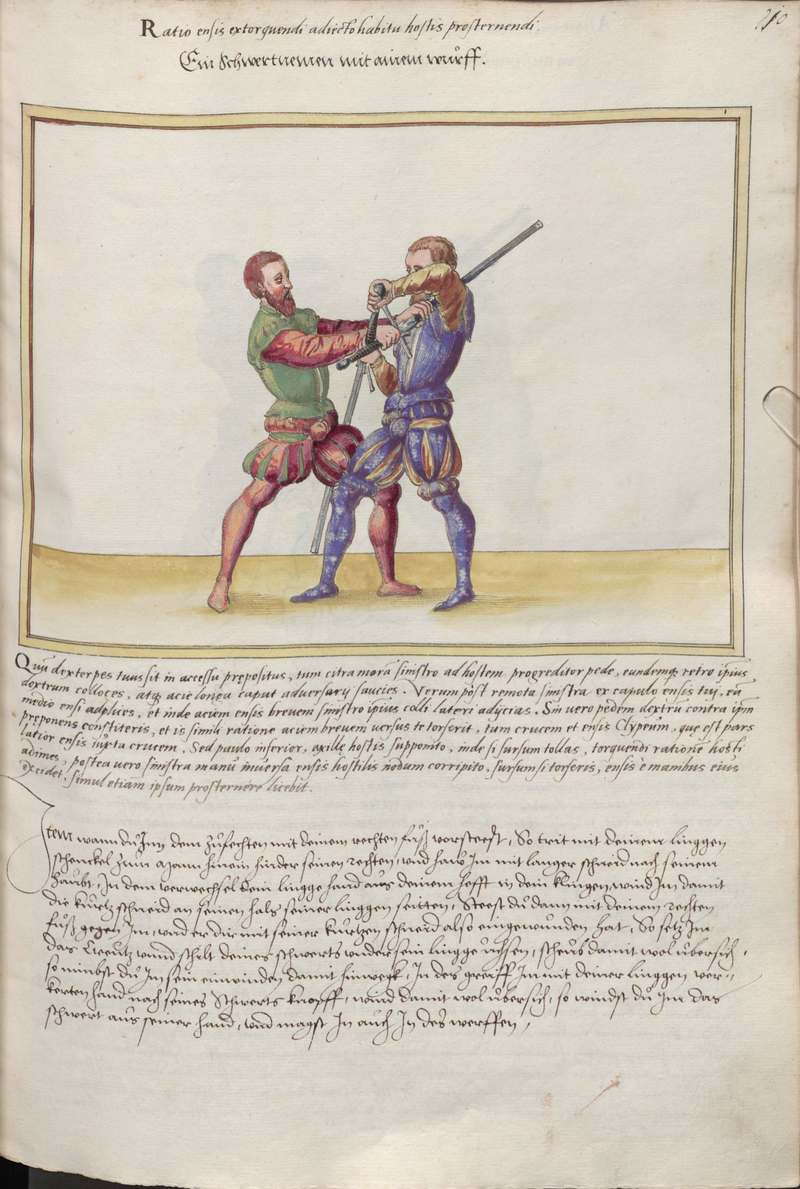 210
Ratio ensis extorquendi adiecto habitu hostis prosternendi.
Ein Schwertnemen mit ainem wurff.
Quū dexter pes tuus sit in accessu prepositus, tum citra morā sinistro ad hostem progreditor pede, eundemq; retro ipius
dextrum colloces, atq; acie longa caput adversarij saucies. Verum post remota sinistra ex capulo ensis tui, eā
medio ensi adplices, et inde aciem ensis brevem sinistro ipsius colli lateri adijcias. Sin vero pedem dextrū contra ipm
preponens constiteris, et is simili ratione aciem brevem versus te torserit, tum crucem et ensis Clypeum, que est pars
latior ensis iuxta crucem, Sed paulo inferior, axille hostis supponito, inde si sursum tollas, torquendi ratione hosti
adimes, postea vero sinistra manu inversa ensis hostilis nodum corripito, sursum si torseris, ensis è manibus eius
excidet, simul etiam ipsum prosternere licebit.
Item wann du Inn dem zufechten mit deinem rechten fuß vorsteest, So trit mit deinem linggen
schenckel zum Mann hinein hinder seinen rechten, und haw Im mit langer schneid nach seinem
haubt, In dem verwechsel dein lingge hand aus deinem hefft in dein klingen, wind Im damit
die kurtz schneid an seinen hals seiner linggen seitten, Steest du dann mit deinem rechten
fuß gegen Im, und er dir mit seiner kurtzen schneid also eingewunden hat, So setz Im
das Creutz unnd schilt deines schwerts under sein lingge uchsen, scheub damit wol ubersich,
so nimbst du Im sein einwinden damit hinwegk, In des greiff Im mit deiner linggen ver=
kerten hand nach seines Schwerts knopff, wind damit wol ubersich, so windst du Im das
schwert aus seiner hand, und magst In auch In des werffen,